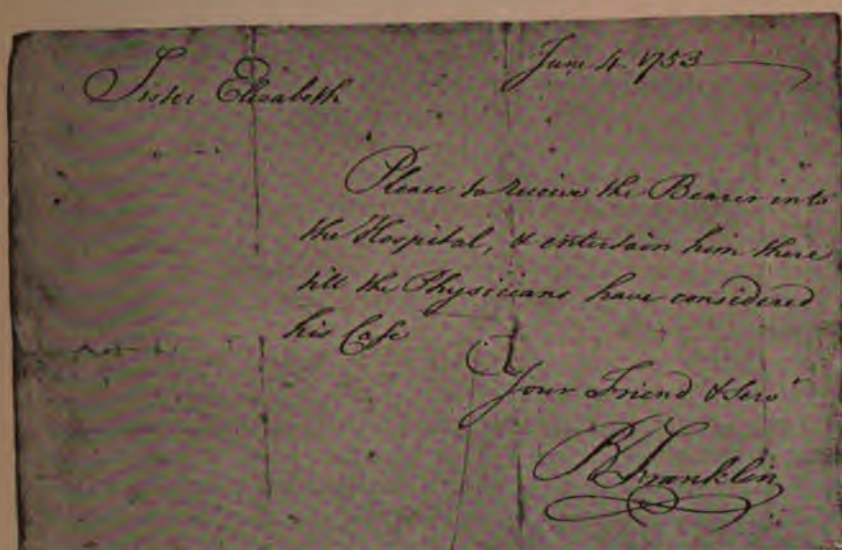 June 4. 1753
Sister Elisabeth
Please to receive the Bearer into
the Hospital, & entertain him there
till the Physicians have considered
his Case
Your Friend & Servt
B Franklin